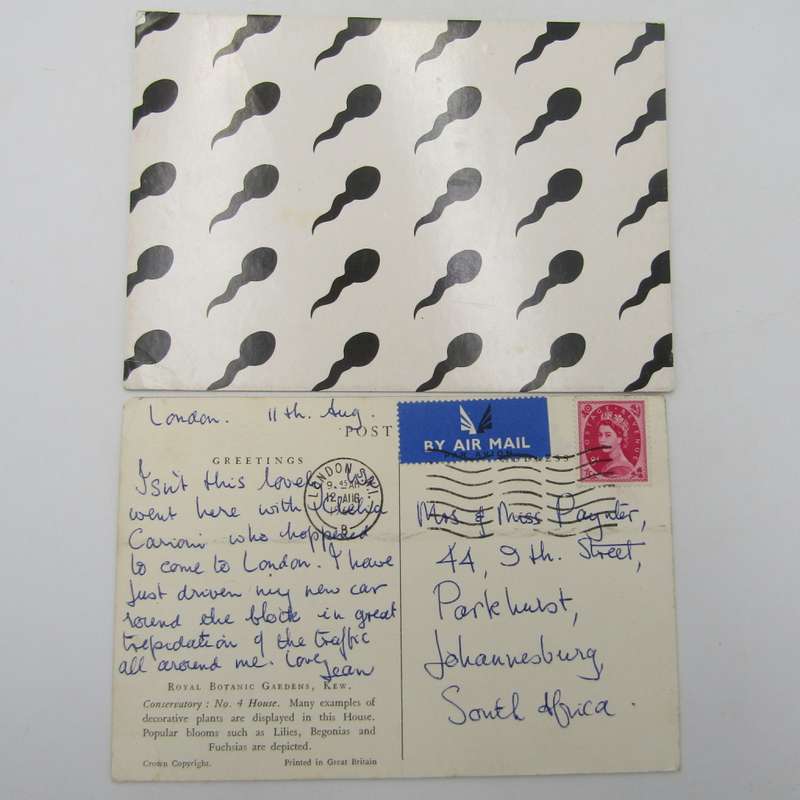 London. 11th. Aug.
POST
BY AIR MAIL
PAR AVION
POSTAGE REVENUE
GREETINGS
LONDON S.W.1.
9. 45 AM
12 AUG
B
Isn't this lovely. We
went here with
who happened
to come to London. I have
just driven my new car
round the block in great
trepidation of the traffic
all around me. Love,
Jean
Mrs & Miss Paynter,
44, 9th. Street,
Parkhurst,
Johannesburg,
South Africa.
ROYAL BOTANIC GARDENS, KEW.
Conservatory: No. 4 House. Many examples of
decorative plants are displayed in this House.
Popular blooms such as Lilies, Begonias and
Fuchsias are depicted.
Crown Copyright. Printed in Great Britain